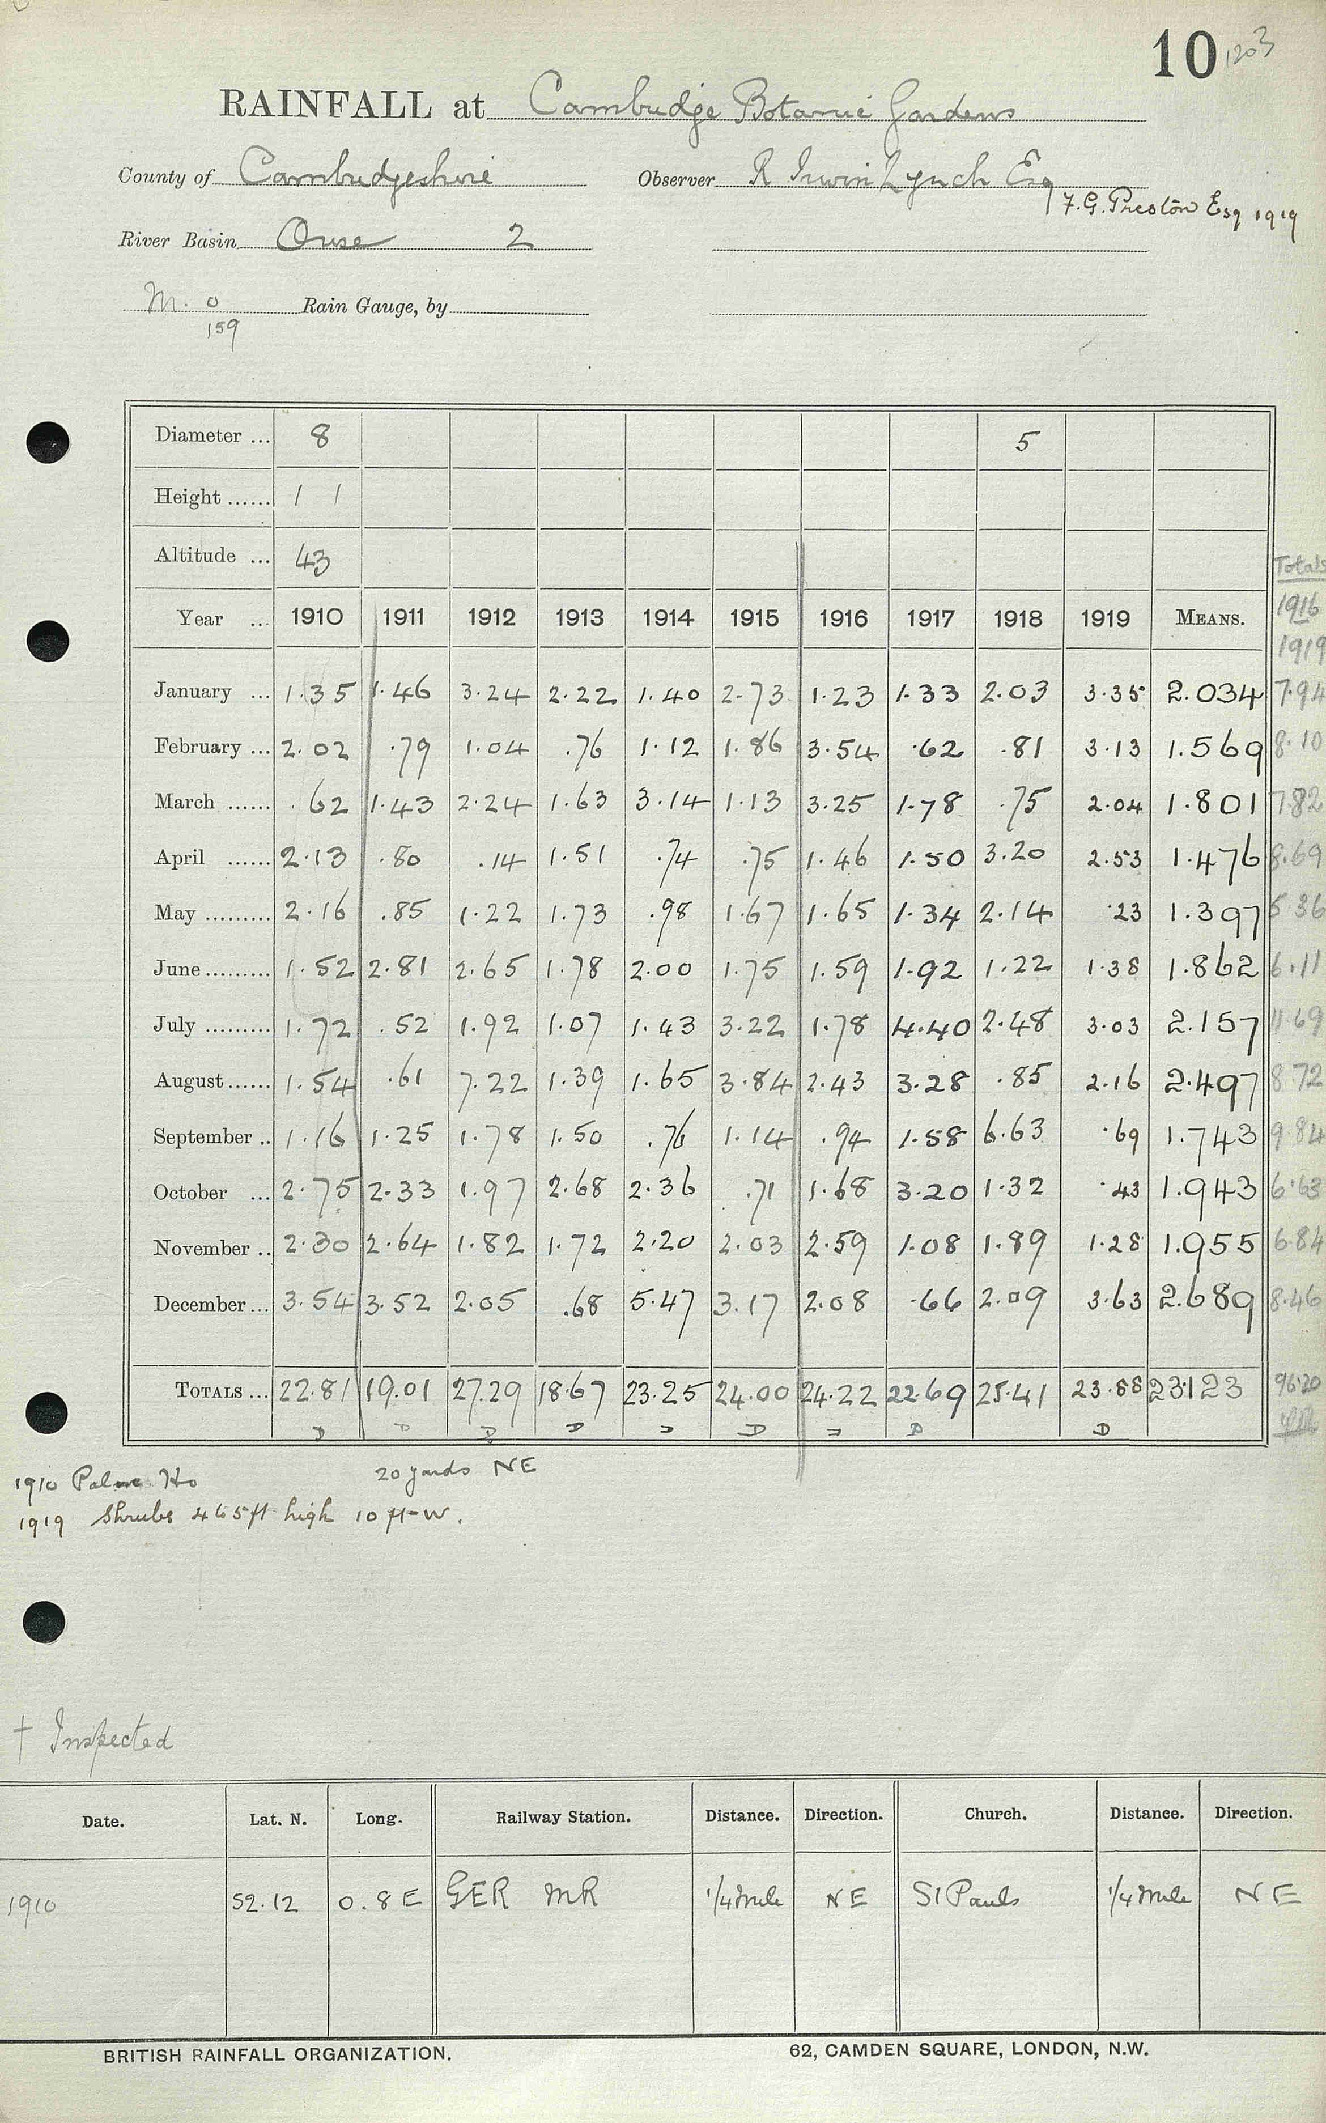 10 1203
RAINFALL at Cambridge Botanic Gardens
County of Cambridgeshire Observer R Irwin Lynch Esq
F.G. Preston Esq 1919
River Basin Ouse 2
M. O Rain Gauge, by
159
Diameter ... 8 5
Height ...... 1 1
Altitude ... 43
Totals
Year ... 1910 1911 1912 1913 1914 1915 1916 1917 1918 1919 MEANS. 1916
1919
January ... 1.35 1.46 3.24 2.22 1.40 2.73 1.23 1.33 2.03 3.35 2.034 7.94
February ... 2.02 .79 1.04 .76 1.12 1.86 3.54 .62 .81 3.13 1.569 8.10
March ...... .62 1.43 2.24 1.63 3.14 1.13 3.25 1.78 .75 2.04 1.801 7.82
April ...... 2.13 .80 .14 1.51 .74 .75 1.46 1.50 3.20 2.53 1.476 8.69
May ......... 2.16 .85 1.22 1.73 .98 1.67 1.65 1.34 2.14 .23 1.397 5.36
June ......... 1.52 2.81 2.65 1.78 2.00 1.75 1.59 1.92 1.22 1.38 1.862 6.11
July ......... 1.72 .52 1.92 1.07 1.43 3.22 1.78 4.40 2.48 3.03 2.157 11.69
August ...... 1.54 .61 7.22 1.39 1.65 3.84 2.43 3.28 .85 2.16 2.497 8.72
September .. 1.16 1.25 1.78 1.50 .76 1.14 .94 1.58 6.63 .69 1.743 9.84
October ... 2.75 2.33 1.97 2.68 2.36 .71 1.68 3.20 1.32 .43 1.943 6.63
November .. 2.30 2.64 1.82 1.72 2.20 2.03 2.59 1.08 1.89 1.28 1.955 6.84
December ... 3.54 3.52 2.05 .68 5.47 3.17 2.08 .66 2.09 3.63 2.689 8.46
TOTALS ... 22.81 19.01 27.29 18.67 23.25 24.00 24.22 22.69 25.41 23.88 23.123 96.20
D D D D D D D D D
1910 Palm Ho 20 yards NE
1919 Shrubs 4 to 5 ft high 10 ft W.
† Inspected
Date. Lat. N. Long. Railway Station. Distance. Direction. Church. Distance. Direction.
1910 52.12 0.8 E GER MR 1/4 mile NE St Pauls 1/4 mile NE
BRITISH RAINFALL ORGANIZATION. 62, CAMDEN SQUARE, LONDON, N.W.